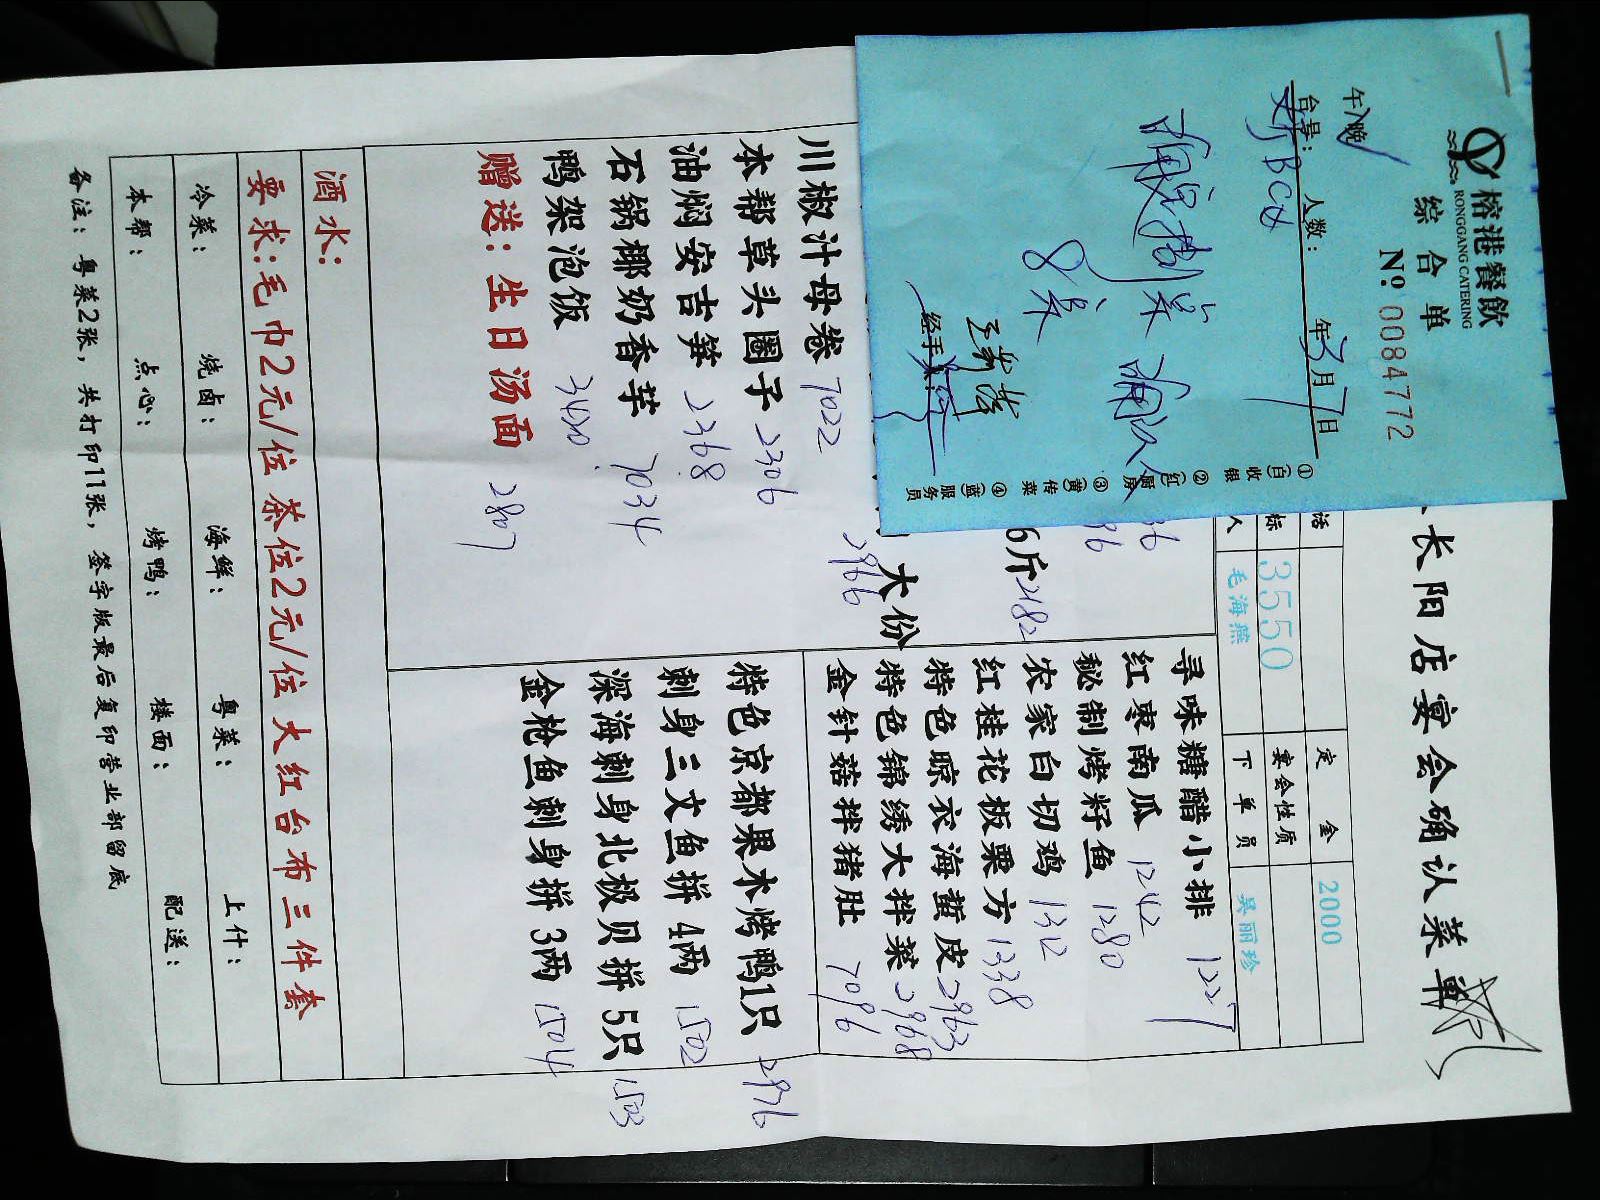 榕港餐飲
RONGGANG CATERING
综合单
№ 0084772
午/晚
年3月7日
台号： 人数：
BCH
8桌
经手人：
①(白)收银 ②(红)厨房 ③(黄)传菜 ④(蓝)服务员
长阳店宴会确认菜单
话 定金 2000
标 3550 宴会性质
人 毛海燕 下单员 吴丽珍
寻味糖醋小排 1227
红枣南瓜 1242
秘制烤籽鱼 1280
农家白切鸡 1312
红桂花板栗方 1338
特色晾衣海蜇皮 2963
特色锦绣大拌菜 2968
金针菇拌猪肚 7096
特色京都果木烤鸭1只 2976
刺身三文鱼拼 4两 1502
深海刺身北极贝拼 5只 1503
金枪鱼刺身拼 3两 1504
6斤 2182
大份
2966
川椒汁母卷 7022
本帮草头圈子 2306
油焖安吉笋 2368
石锅椰奶香芋 7034
鸭架泡饭 3420
赠送：生日汤面 2807
酒水：
要求：毛巾2元/位 茶位2元/位 大红台布三件套
冷菜： 烧卤： 海鲜： 粤菜： 上什：
本帮： 点心： 烤鸭： 楼面： 配送：
备注：粤菜2张，共打印11张，签字版最后复印营业部留底